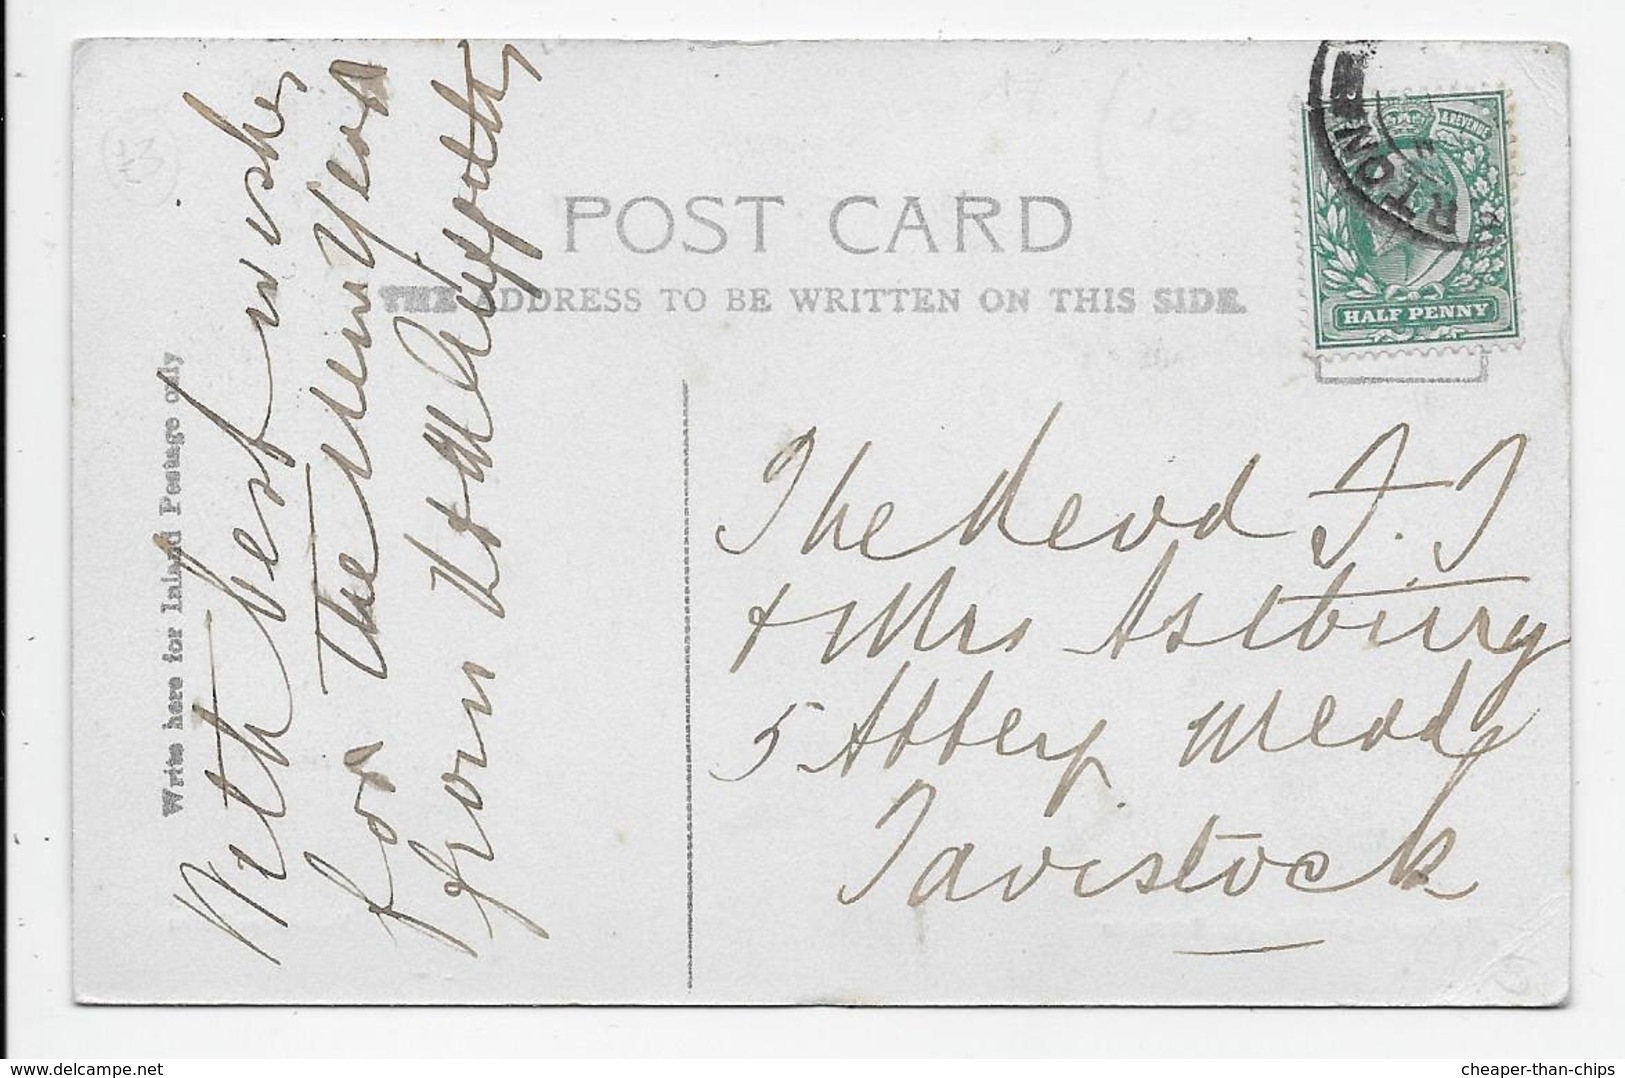 POST CARD
THE ADDRESS TO BE WRITTEN ON THIS SIDE.
Write here for Inland Postage only
With best wishes
for the New Year
from
The Revd J. J
& Mrs Astbury
5 Abbey Mead
Tavistock
& REVENUE
HALF PENNY
RTON
£3
delcampe.net
cheaper-than-chips